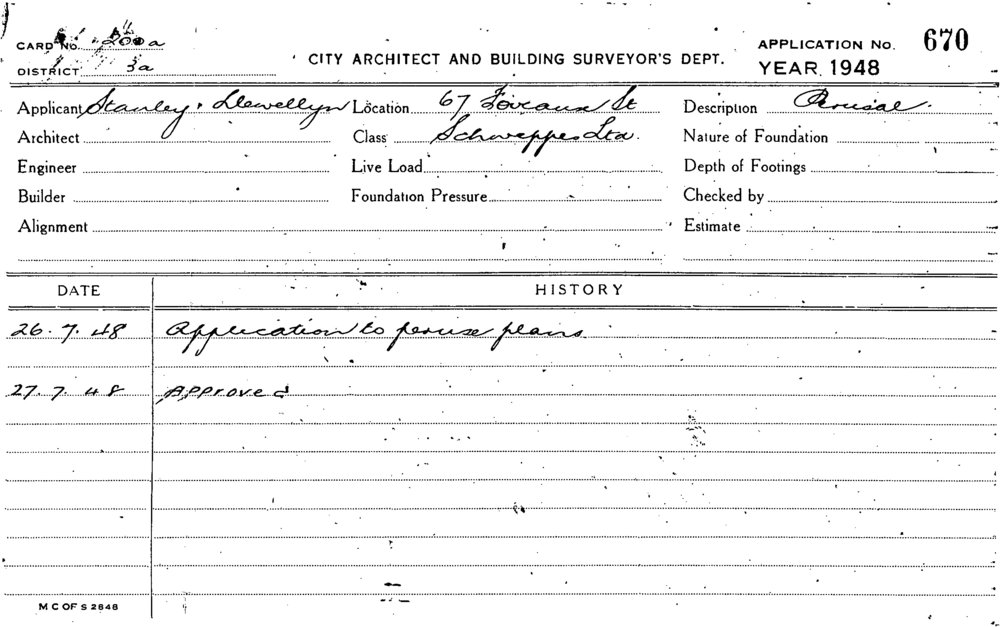 CARD NO. 200a
DISTRICT 3a
CITY ARCHITECT AND BUILDING SURVEYOR'S DEPT.
APPLICATION NO. 670
YEAR 1948
Applicant Stanley & Llewellyn Location 67 Foveaux St Description Perusal.
Architect Class Schweppes Ltd. Nature of Foundation
Engineer Live Load Depth of Footings
Builder Foundation Pressure Checked by
Alignment Estimate
DATE HISTORY
26.7.48 Application to peruse plans.
27.7.48 Approved
M C OF S 2848